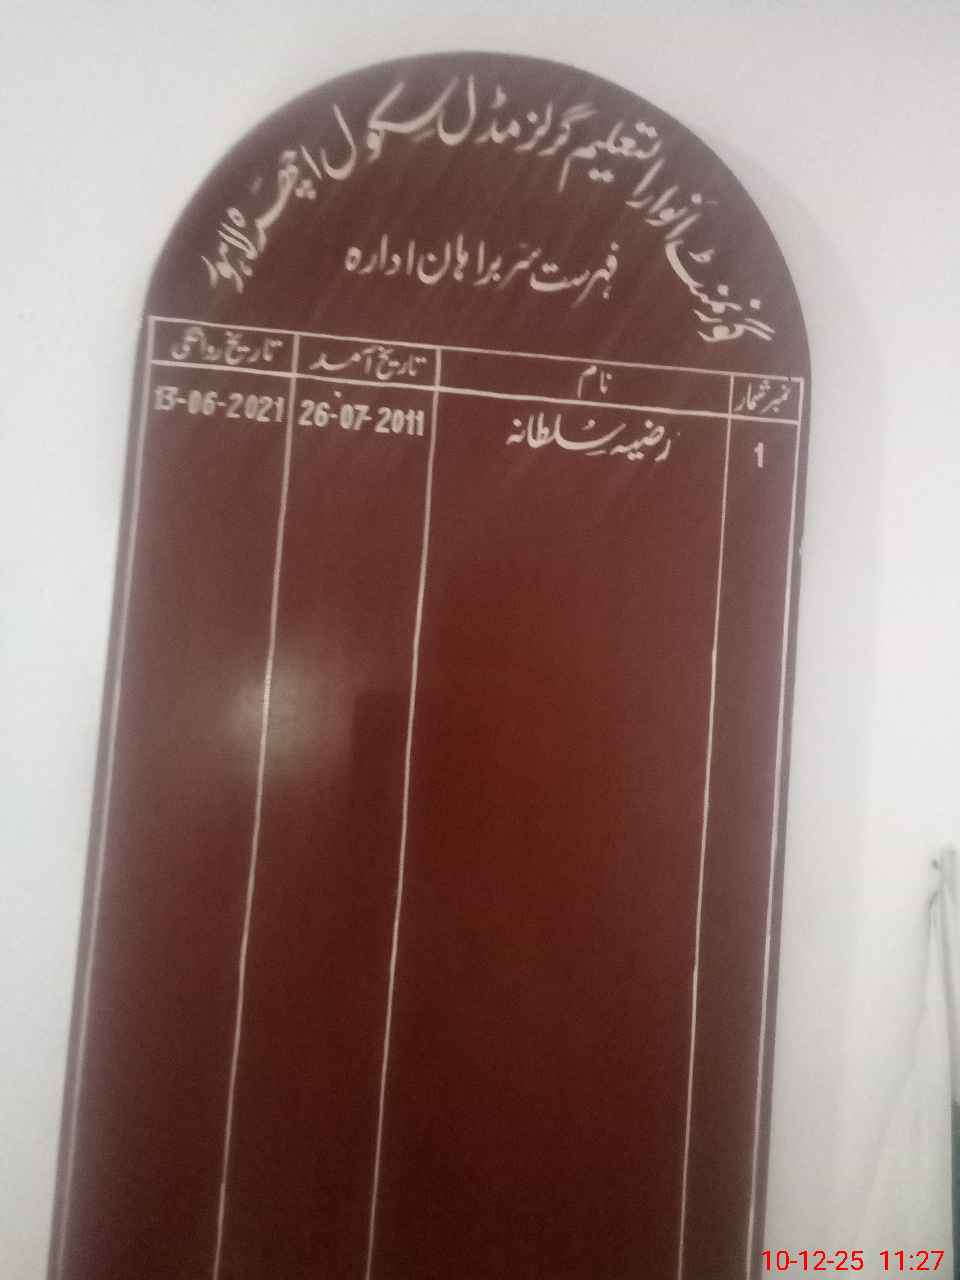 گورنمنٹ انوار التعلیم گرلز مڈل سکول اچھرہ لاہور
فہرست سربراہان ادارہ
نمبر شمار نام تاریخ آمد تاریخ روانگی
1 رضیہ سلطانہ 26-07-2011 13-06-2021
10-12-25 11:27